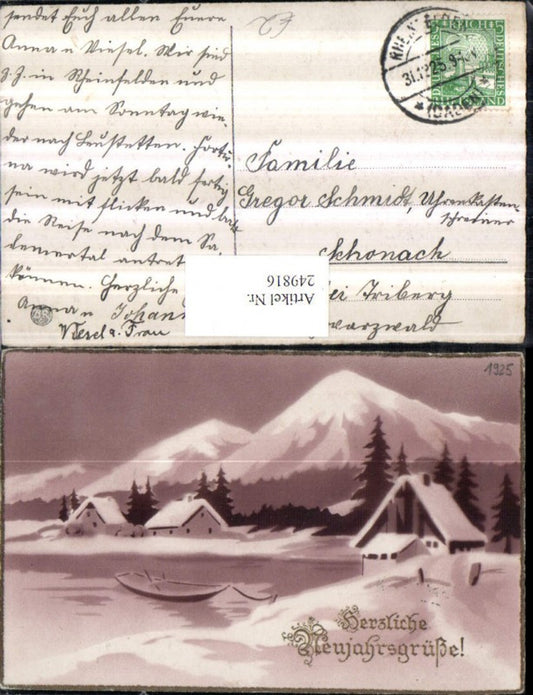 sendet Euch allen Euere
Anna u Viesel. Wir sind
z. Z. in Rheinfelden und
gehen am Sonntag wie
der nach Leustetten.
na wird jetzt bald fertig
sein mit flicken und
die Reise nach dem Sa
lemertal
können. Herzliche
Anna u Johann
Viesel u. Frau
31.12.25.9-
*(BADEN)*
DEUTSCHES REICH
Familie
Gregor Schmidt, Uhrenkasten-
schreiner
Schonach
Triberg
Artikel Nr.
249816
1925
Herzliche
Neujahrsgrüße!